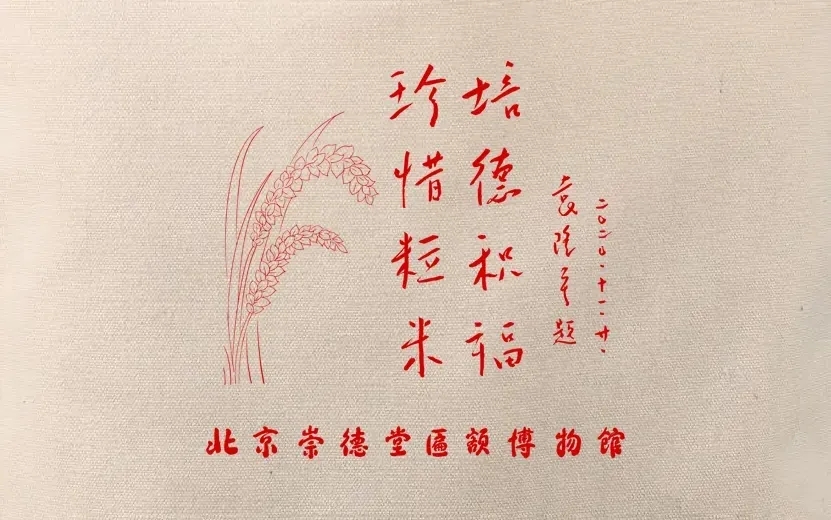 珍惜粒米
培德积福
袁隆平题
二〇二〇、十一、廿、
北京崇德堂匾額博物館